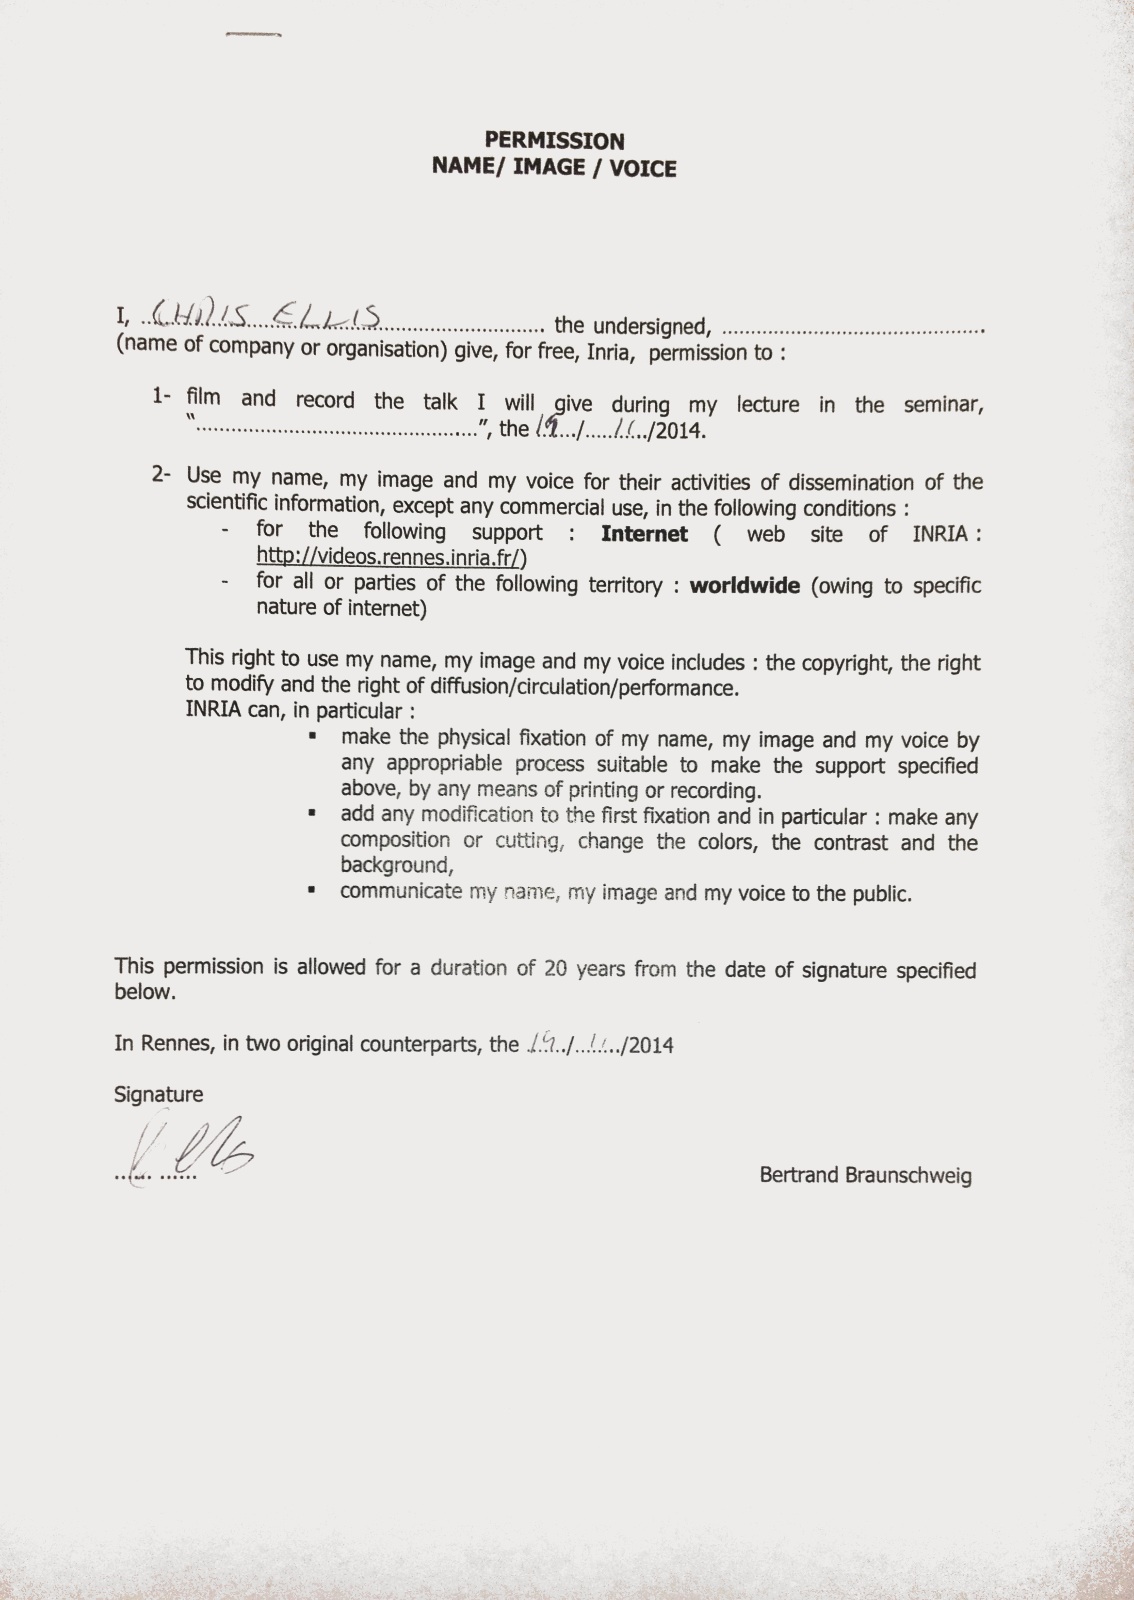 PERMISSION
NAME/ IMAGE / VOICE
I, ...CHRIS ELLIS............................ the undersigned, ..........................................
(name of company or organisation) give, for free, Inria, permission to :
1- film and record the talk I will give during my lecture in the seminar,
“.............................................”, the 19../.....11../2014.
2- Use my name, my image and my voice for their activities of dissemination of the
scientific information, except any commercial use, in the following conditions :
- for the following support : Internet ( web site of INRIA :
http://videos.rennes.inria.fr/)
- for all or parties of the following territory : worldwide (owing to specific
nature of internet)
This right to use my name, my image and my voice includes : the copyright, the right
to modify and the right of diffusion/circulation/performance.
INRIA can, in particular :
▪ make the physical fixation of my name, my image and my voice by
any appropriable process suitable to make the support specified
above, by any means of printing or recording.
▪ add any modification to the first fixation and in particular : make any
composition or cutting, change the colors, the contrast and the
background,
▪ communicate my name, my image and my voice to the public.
This permission is allowed for a duration of 20 years from the date of signature specified
below.
In Rennes, in two original counterparts, the 19../...11../2014
Signature
...... ......
Bertrand Braunschweig